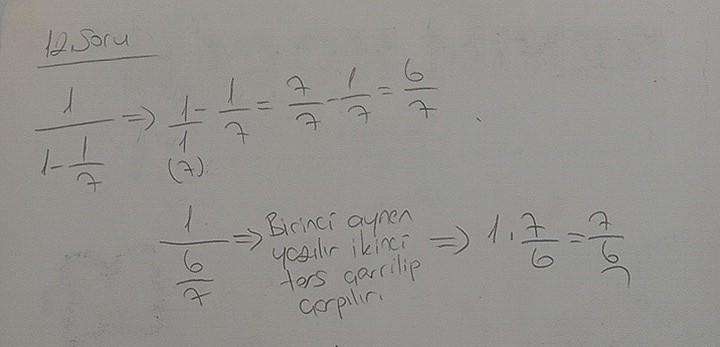 12. Soru
1/(1-1/7) => 1/1 - 1/7 = 7/7 - 1/7 = 6/7
(7)
1/(6/7) => Birinci aynen yazılır ikinci ters çevrilip çarpılır. => 1 . 7/6 = 7/6